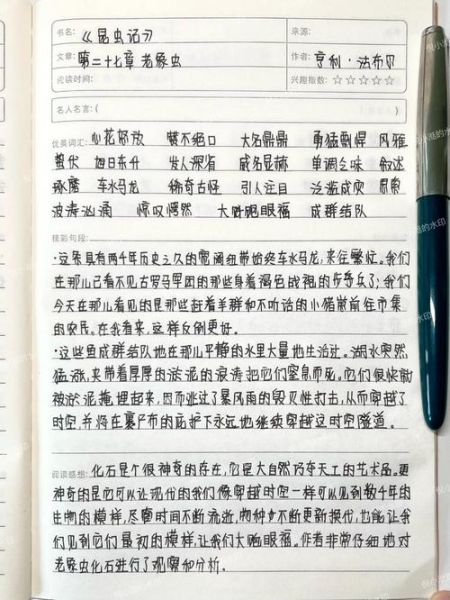 书名：《昆虫记》 来源：
文章：第二十七章 老象虫 作者：亨利·法布尔
阅读时间： 兴趣指数：☆☆☆☆☆
名人名言：(
优美词汇：心花怒放 赞不绝口 大名鼎鼎 勇猛剽悍 风雅
蛰伏 旭日东升 发人深省 威名显赫 单调乏味 叙述
琢磨 车水马龙 稀奇古怪 引人注目 泛滥成灾
波涛汹涌 惊叹愕然 大饱眼福 成群结队
精彩句段：
·这条具有两千年历史之久的 纽带始终车水马龙，来往繁忙。我们
在那儿已看不见古罗马军团的那些身着褐色战袍的步兵了；我们
今天在那儿看见的是那些赶着羊群和不听话的小猪崽前往市集
的农民。在我看来，这样反倒更好。
·这些鱼成群结队地在那儿平静的水里大量地生活过。湖水突然
猛涨，夹带着厚厚的淤泥的浪涛把它们窒息而死。它们很快就
被淤泥掩埋起来，因而逃过了暴风雨的毁灭性打击，从而穿越了
时空，并将在裹尸布的庇护下永远地继续穿越这时空隧道。
阅读感想：化石是个很神奇的存在，它是大自然巧夺天工的艺术品。更
神奇的是它可以让现代的我们像穿越时空一样可以见到数千年的
生物的模样，尽管时间不断流逝，物种不断更新换代，也能让我
们见到它们最初的模样，让我们大饱眼福。作者非常仔细地对
老象虫化石进行了观察和分析。